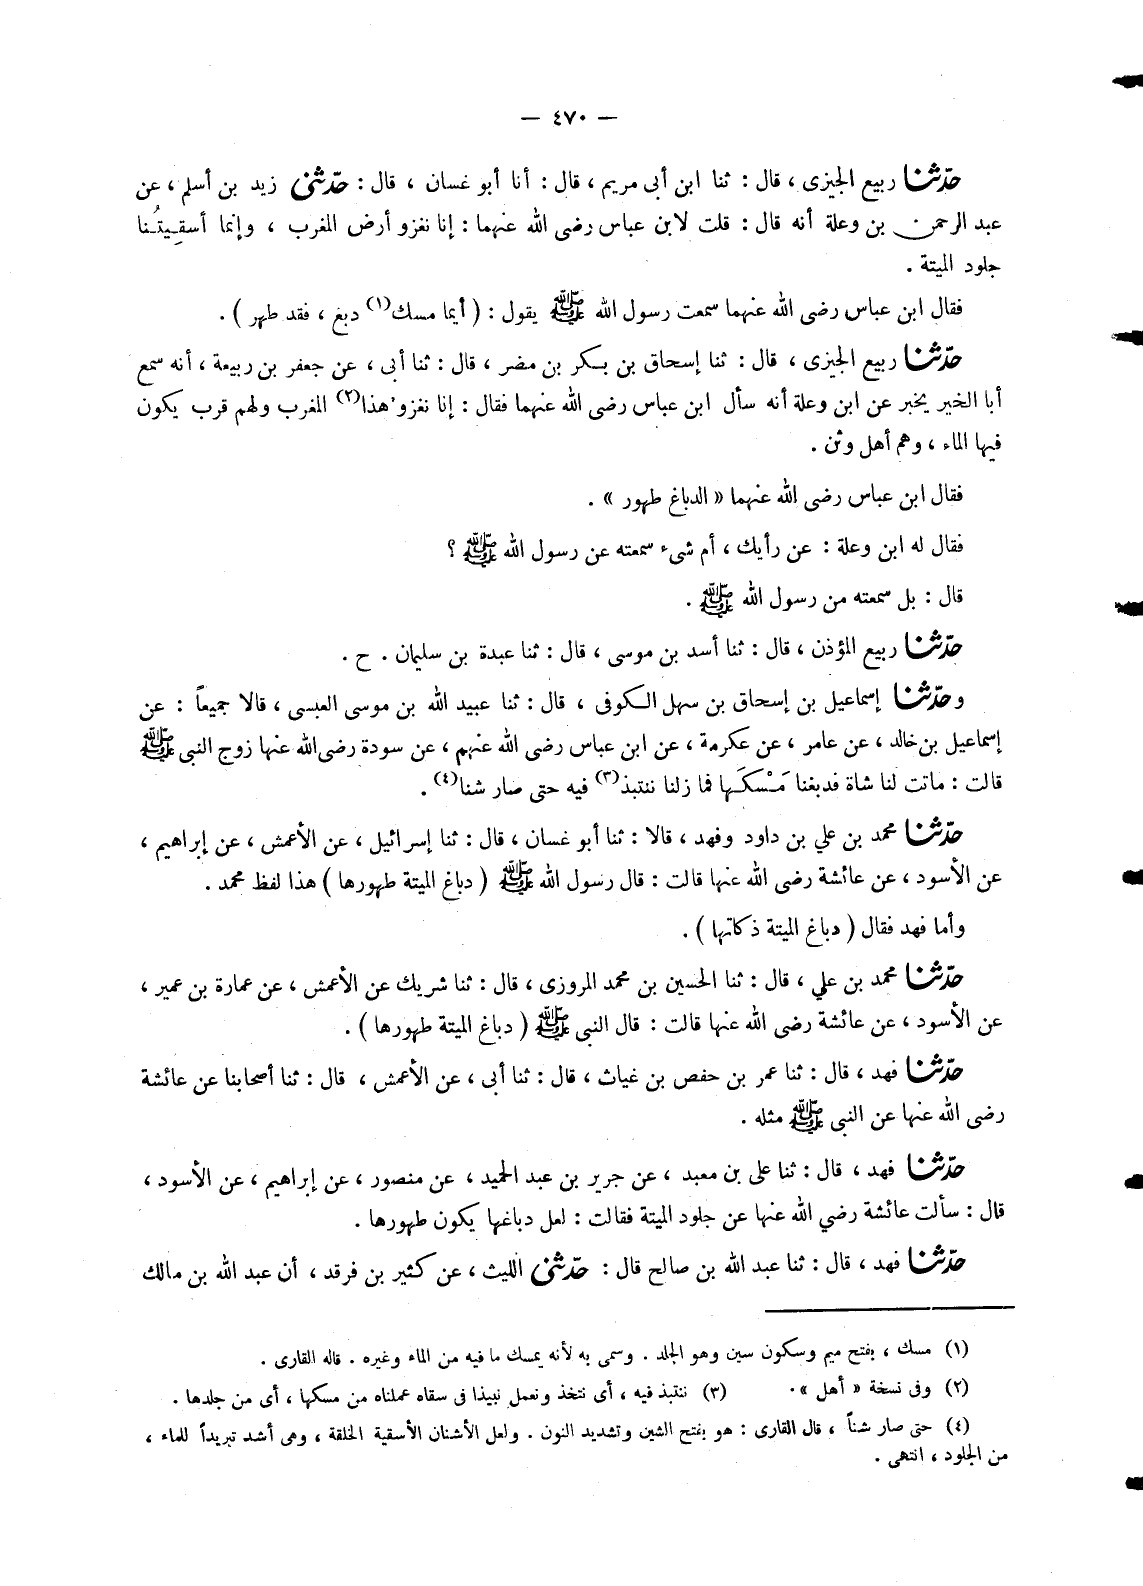 — ٤٧٠ —
حدّثنا ربيع الجيزى ، قال : ثنا ابن أبى مريم ، قال : أنا أبو غسان ، قال : حدّثنى زيد بن أسلم ، عن
عبد الرحمن بن وعلة أنه قال : قلت لابن عباس رضى الله عنهما : إنا نغزو أرض المغرب ، وإنما أسقِيتُنا
جلود الميتة .
فقال ابن عباس رضى الله عنهما سمعت رسول الله ﷺ يقول : ( أيما مسك(١) دبغ ، فقد طهر ) .
حدّثنا ربيع الجيزى ، قال : ثنا إسحاق بن بكر بن مضر ، قال : ثنا أبى ، عن جعفر بن ربيعة ، أنه سمع
أبا الخير يخبر عن ابن وعلة أنه سأل ابن عباس رضى الله عنهما فقال : إنا نغزو هذا(٢) المغرب ولهم قرب يكون
فيها الماء ، وهم أهل وثن .
فقال ابن عباس رضى الله عنهما « الدباغ طهور » .
فقال له ابن وعلة : عن رأيك ، أم شىء سمعته عن رسول الله ﷺ ؟
قال : بل سمعته من رسول الله ﷺ .
حدّثنا ربيع المؤذن ، قال : ثنا أسد بن موسى ، قال : ثنا عبدة بن سليمان . ح .
وحدّثنا إسماعيل بن إسحاق بن سهل الكوفى ، قال : ثنا عبيد الله بن موسى العبسى ، قالا جميعاً : عن
إسماعيل بن خالد ، عن عامر ، عن عكرمة ، عن ابن عباس رضى الله عنهم ، عن سودة رضى الله عنها زوج النبى ﷺ
قالت : ماتت لنا شاة فدبغنا مَسْكَها فما زلنا ننتبذ(٣) فيه حتى صار شنا(٤) .
حدّثنا محمد بن علي بن داود وفهد ، قالا : ثنا أبو غسان ، قال : ثنا إسرائيل ، عن الأعمش ، عن إبراهيم ،
عن الأسود ، عن عائشة رضى الله عنها قالت : قال رسول الله ﷺ ( دباغ الميتة طهورها ) هذا لفظ محمد .
وأما فهد فقال ( دباغ الميتة ذكاتها ) .
حدّثنا محمد بن علي ، قال : ثنا الحسين بن محمد المروزى ، قال : ثنا شريك عن الأعمش ، عن عمارة بن عمير ،
عن الأسود ، عن عائشة رضى الله عنها قالت : قال النبى ﷺ ( دباغ الميتة طهورها ) .
حدّثنا فهد ، قال : ثنا عمر بن حفص بن غياث ، قال : ثنا أبى ، عن الأعمش ، قال : ثنا أصحابنا عن عائشة
رضى الله عنها عن النبى ﷺ مثله .
حدّثنا فهد ، قال : ثنا على بن معبد ، عن جرير بن عبد الحميد ، عن منصور ، عن إبراهيم ، عن الأسود ،
قال : سألت عائشة رضي الله عنها عن جلود الميتة فقالت : لعل دباغها يكون طهورها .
حدّثنا فهد ، قال : ثنا عبد الله بن صالح قال : حدّثنى الليث ، عن كثير بن فرقد ، أن عبد الله بن مالك
(١) مسك ، بفتح ميم وسكون سين وهو الجلد . وسمى به لأنه يمسك ما فيه من الماء وغيره . قاله القارى .
(٢) وفى نسخة « أهل » . (٣) ننتبذ فيه ، أى نتخذ ونعمل نبيذا فى سقاء عملناه من مسكها ، أى من جلدها .
(٤) حتى صار شناً ، قال القارى : هو بفتح الشين وتشديد النون . ولعل الأشنان الأسقية الخلقة ، وهى أشد تبريداً للماء ،
من الجلود ، انتهى .